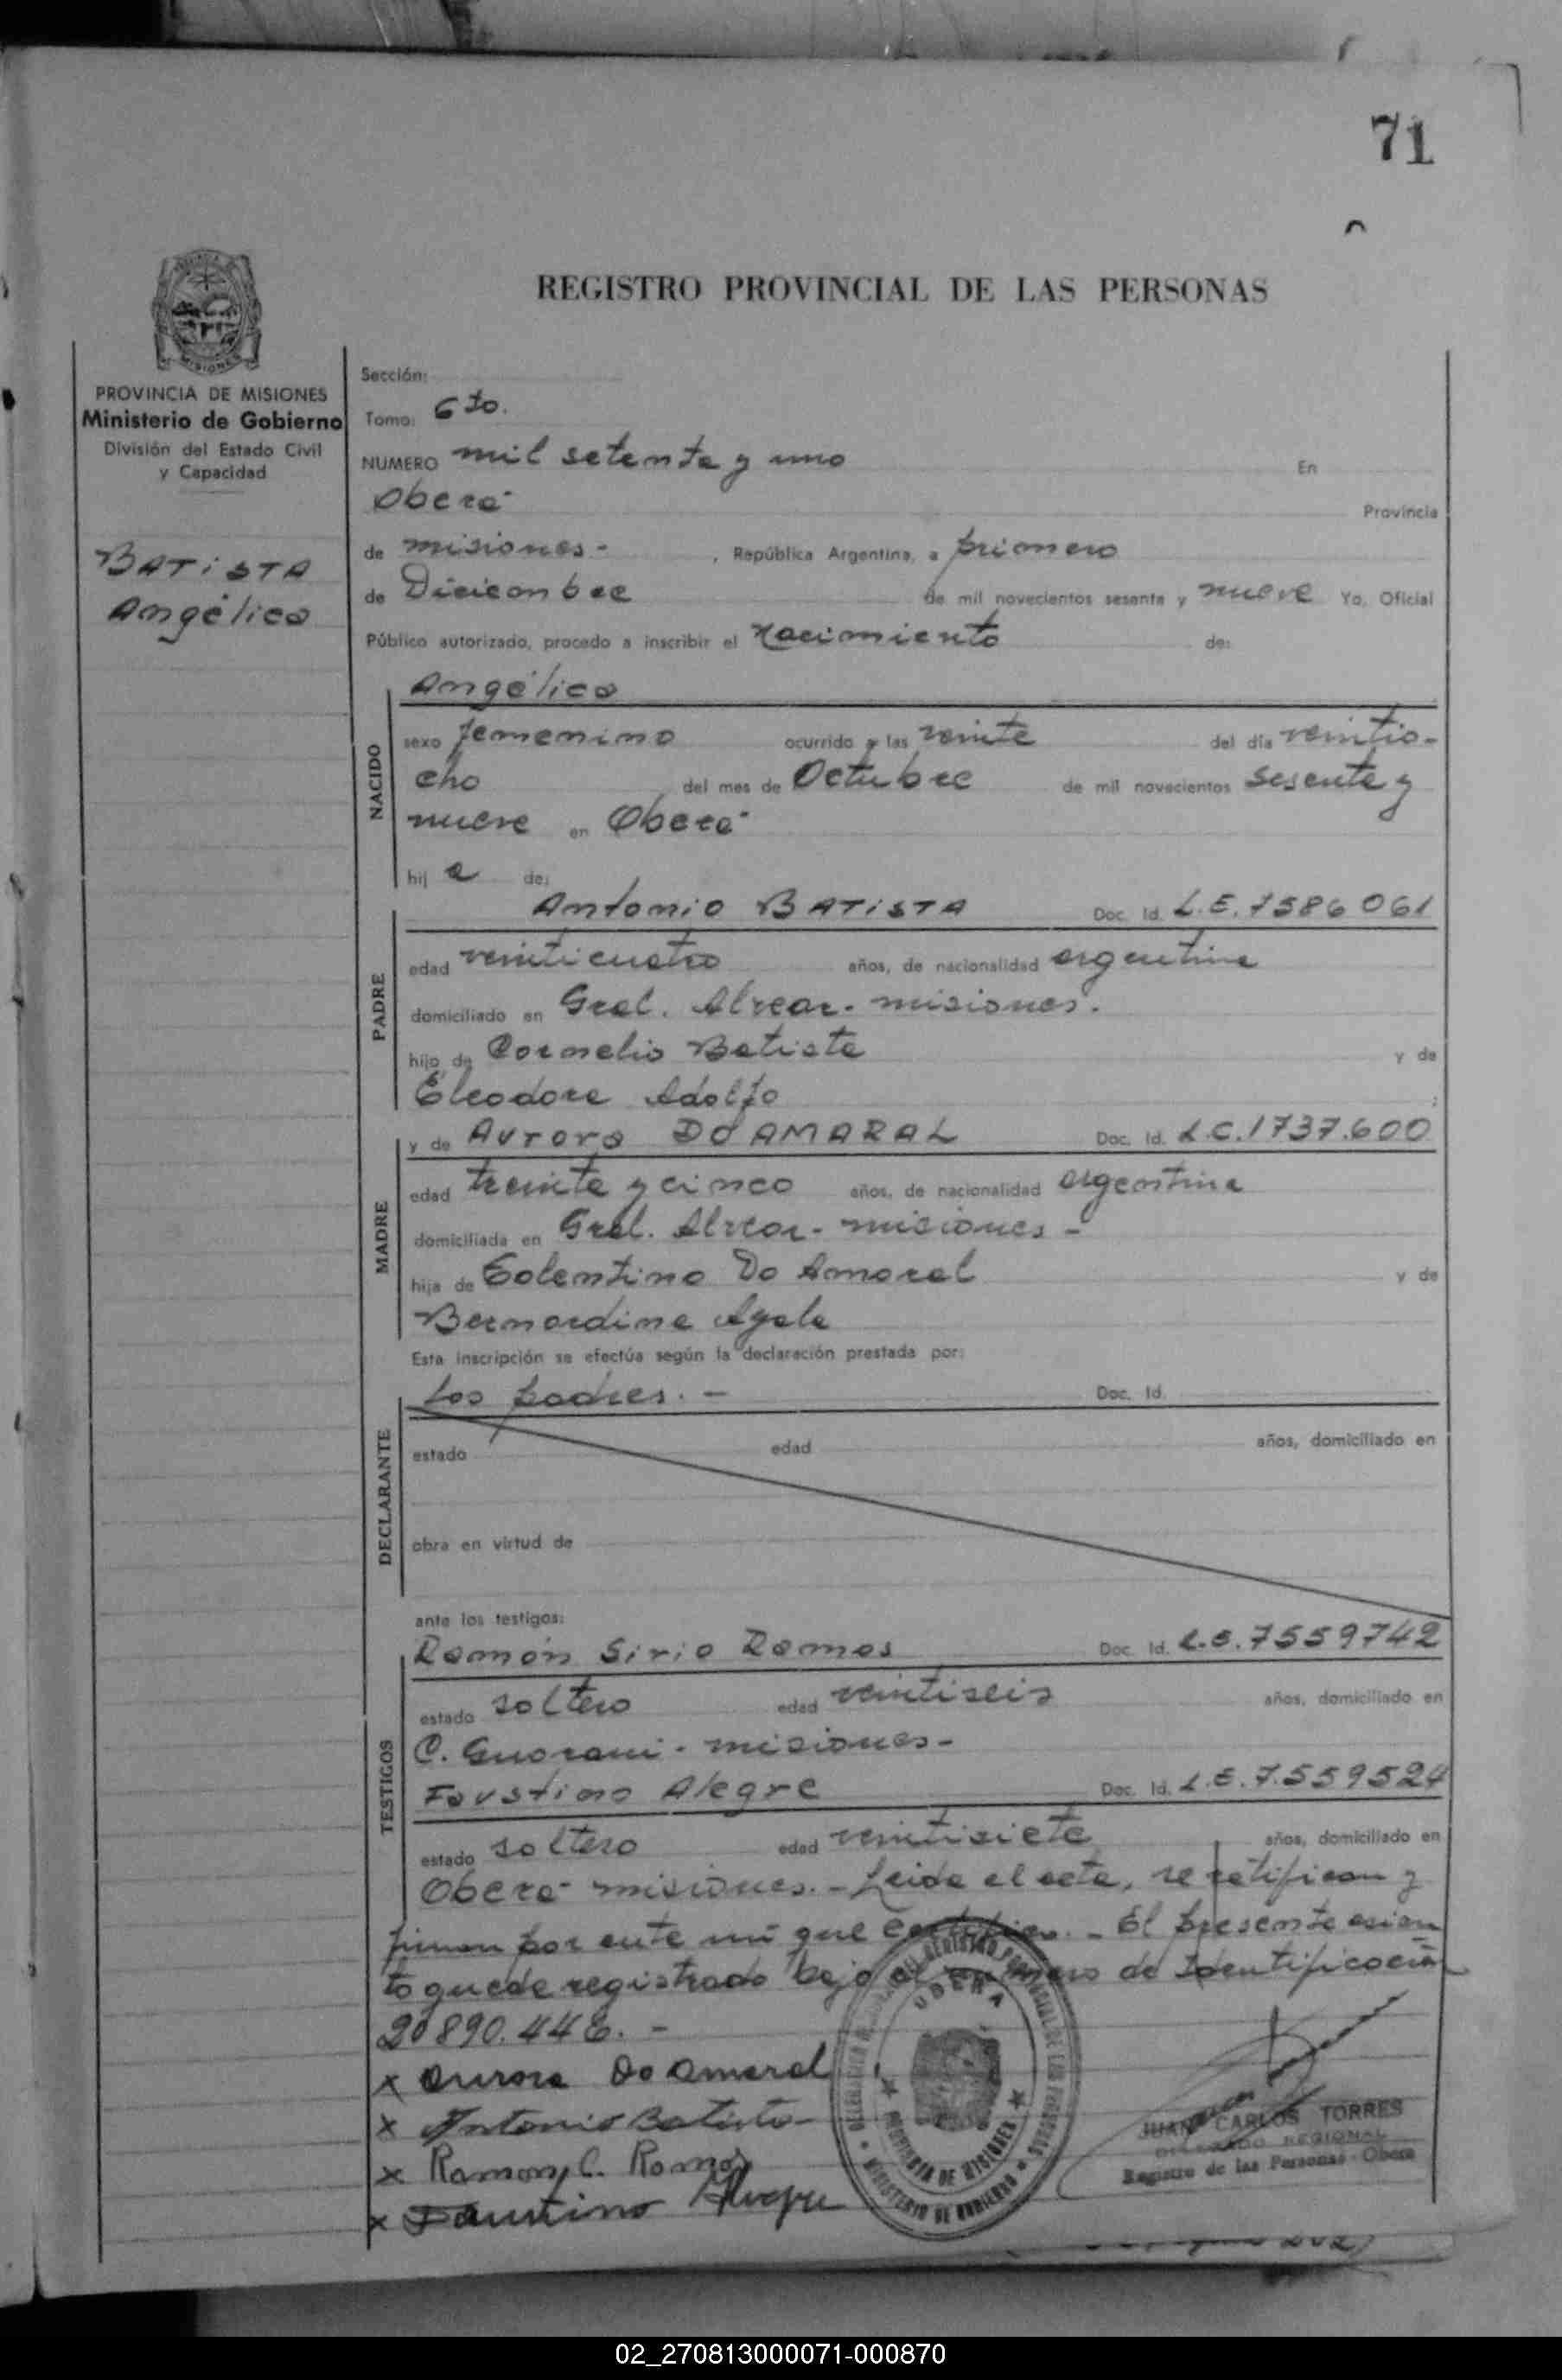 71
REGISTRO PROVINCIAL DE LAS PERSONAS
MISIONES
PROVINCIA DE MISIONES
Ministerio de Gobierno
División del Estado Civil
y Capacidad
BATiSTA
Angélica
Sección:
Tomo: 6to.
NUMERO mil setenta y uno En
Oberá Provincia
de misiones- , República Argentina, a primero
de Diciembre de mil novecientos sesenta y nueve Yo, Oficial
Público autorizado, procedo a inscribir el Nacimiento de:
NACIDO
Angélica
sexo femenino ocurrido a las veinte del día veintio-
cho del mes de Octubre de mil novecientos sesenta y
nueve en Oberá
hij a de:
PADRE
Antonio BATiSTA Doc. Id. L.E. 7586061
edad veinticuatro años, de nacionalidad argentina
domiciliado en Gral. Alvear- misiones.
hijo de Cornelio Batista y de
Eleodora Adolfo :
MADRE
y de Aurora DO AMARAL Doc. Id. L.C. 1737.600
edad treinta y cinco años, de nacionalidad argentina
domiciliada en Gral. Alvear- misiones-
hija de Tolentino Do Amaral y de
Bernardina Ayala
Esta inscripción se efectúa según la declaración prestada por:
DECLARANTE
Los padres.- Doc. Id.
estado edad años, domiciliado en
obra en virtud de
ante los testigos:
TESTIGOS
Ramón Sirio Ramos Doc. Id. L.E. 7559742
estado soltero edad veintiseis años, domiciliado en
C. Guarani- misiones-
Faustino Alegre Doc. Id. L.E. 7.559524
estado soltero edad veintisiete años, domiciliado en
Oberá misiones.- Leida el acta, se ratifican y
firman por ante mi que certifico.- El presente asien
to queda registrado bajo el numero de Identificación
20890.446.-
x Aurora Do Amaral
x Antonio Batista
x Ramon Ramos
x Faustino Alegre
OBERA
PROVINCIA DE MISIONES
MINISTERIO DE GOBIERNO
JUAN CARLOS TORRES
DELEGADO REGIONAL
Registro de las Personas - Obera
02_270813000071-000870